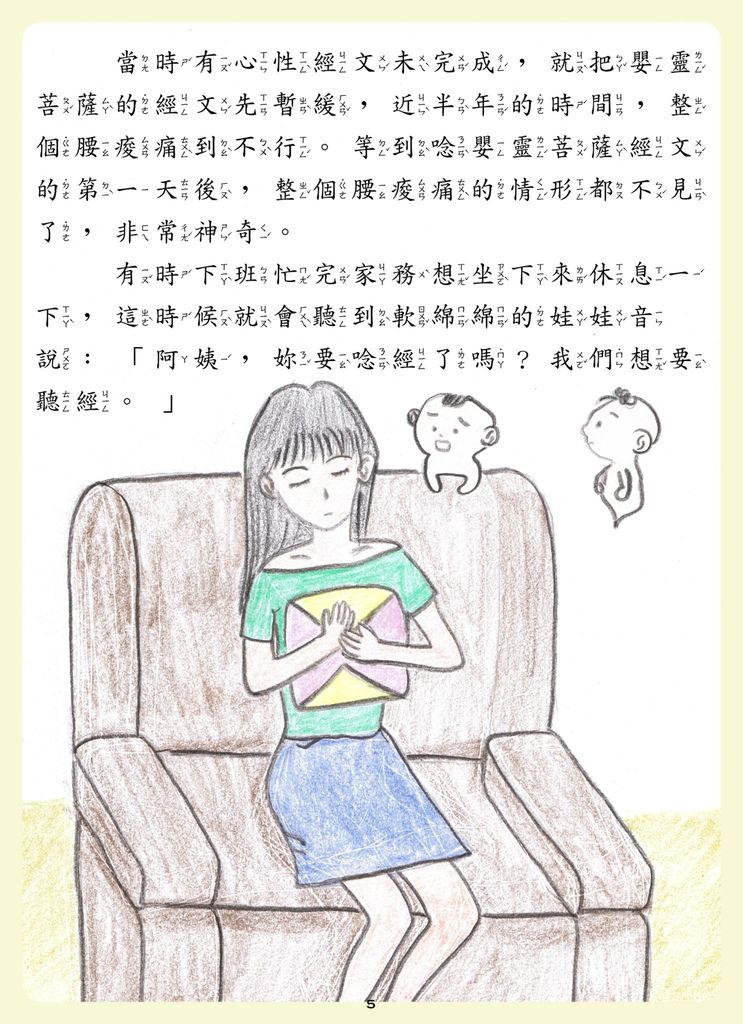 當時有心性經文未完成，就把嬰靈
菩薩的經文先暫緩，近半年的時間，整
個腰痠痛到不行。等到唸嬰靈菩薩經文
的第一天後，整個腰痠痛的情形都不見
了，非常神奇。
有時下班忙完家務想坐下來休息一
下，這時候就會聽到軟綿綿的娃娃音
說：「阿姨，妳要唸經了嗎？我們想要
聽經。」
5